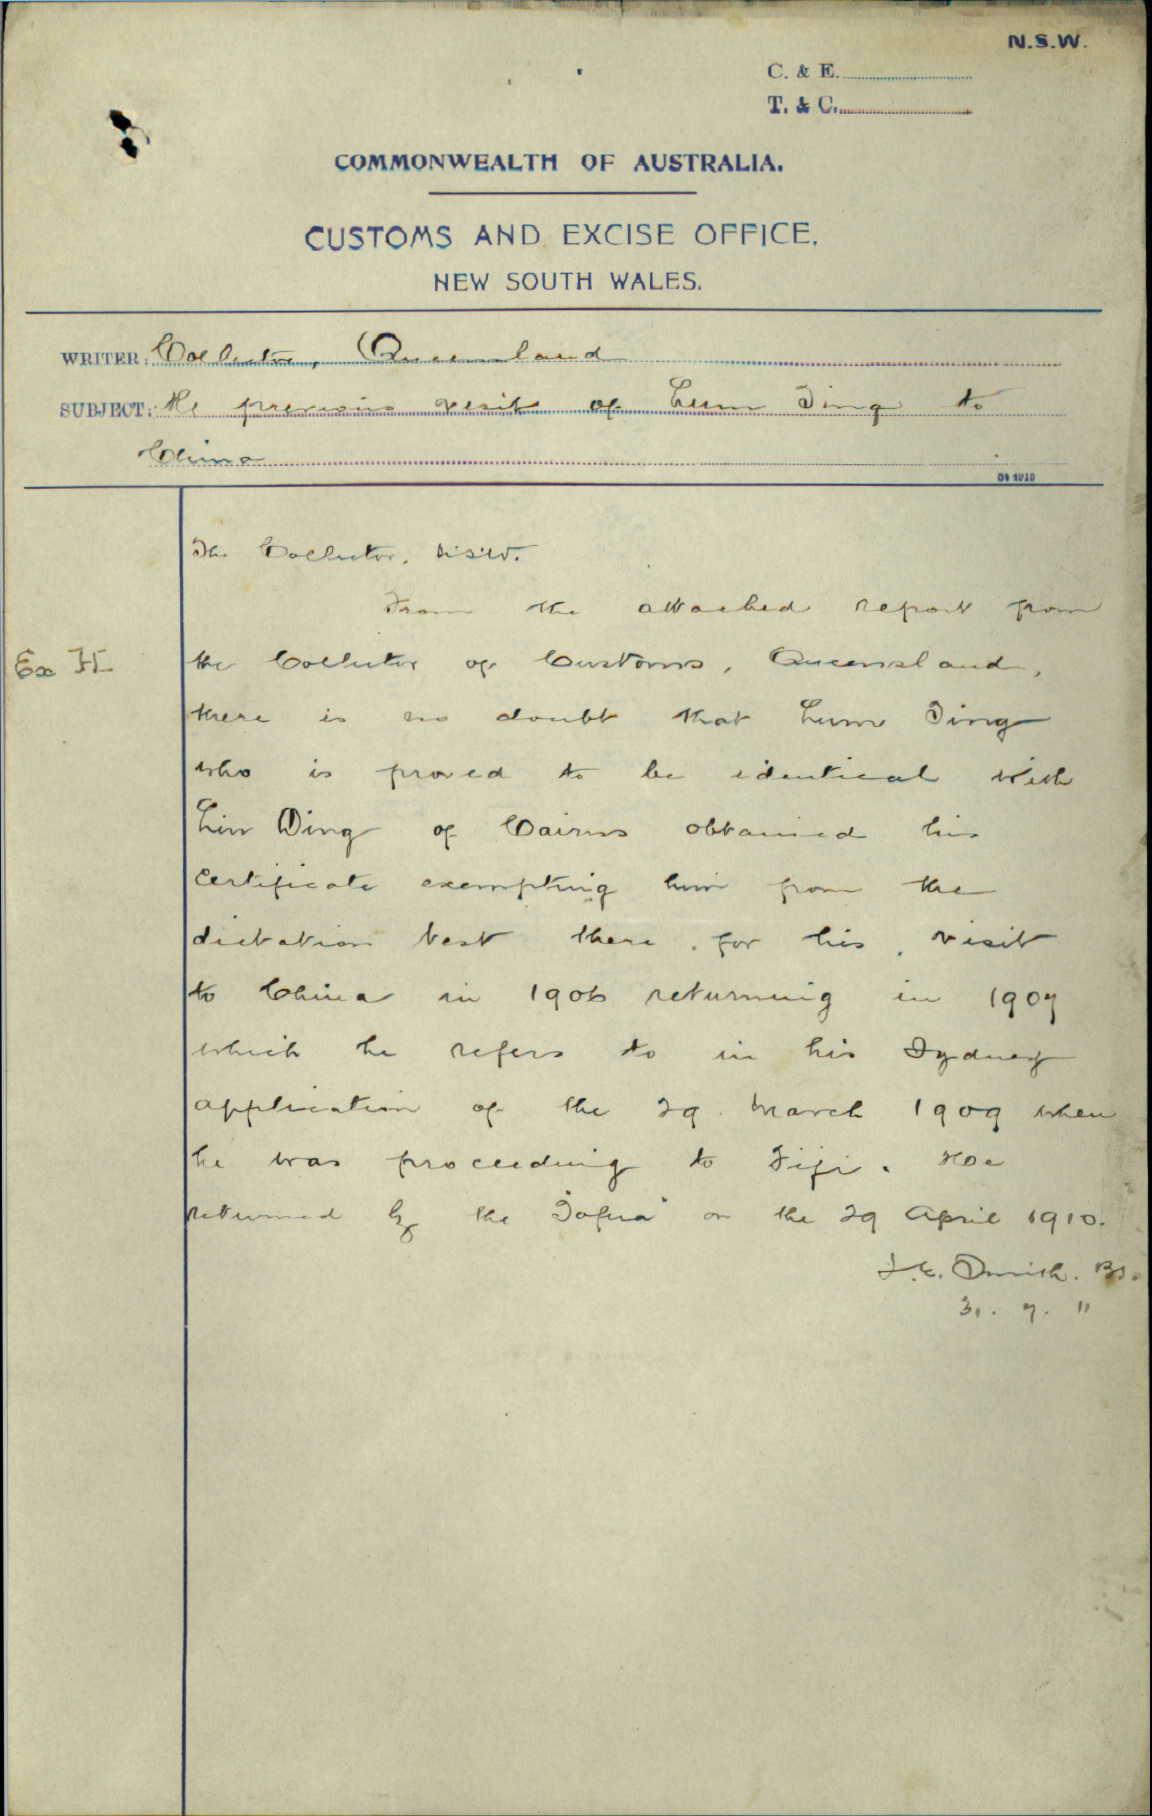 N.S.W.
C. & E.
T. & C.
COMMONWEALTH OF AUSTRALIA.
CUSTOMS AND EXCISE OFFICE,
NEW SOUTH WALES.
WRITER: Collector, Queensland
SUBJECT: Re previous visit of Lum Ding to
China
The Collector, N.S.W.
From the attached report from
Ex H
the Collector of Customs, Queensland,
there is no doubt that Lum Ding
who is proved to be identical with
Lin Ding of Cairns obtained his
certificate exempting him from the
dictation test there, for his, visit
to China in 1906 returning in 1907
which he refers to in his Sydney
application of the 29 March 1909 when
he was proceeding to Fiji. He
returned by the "Tofua" on the 29 April 1910.
Smith.
31. 7. 11